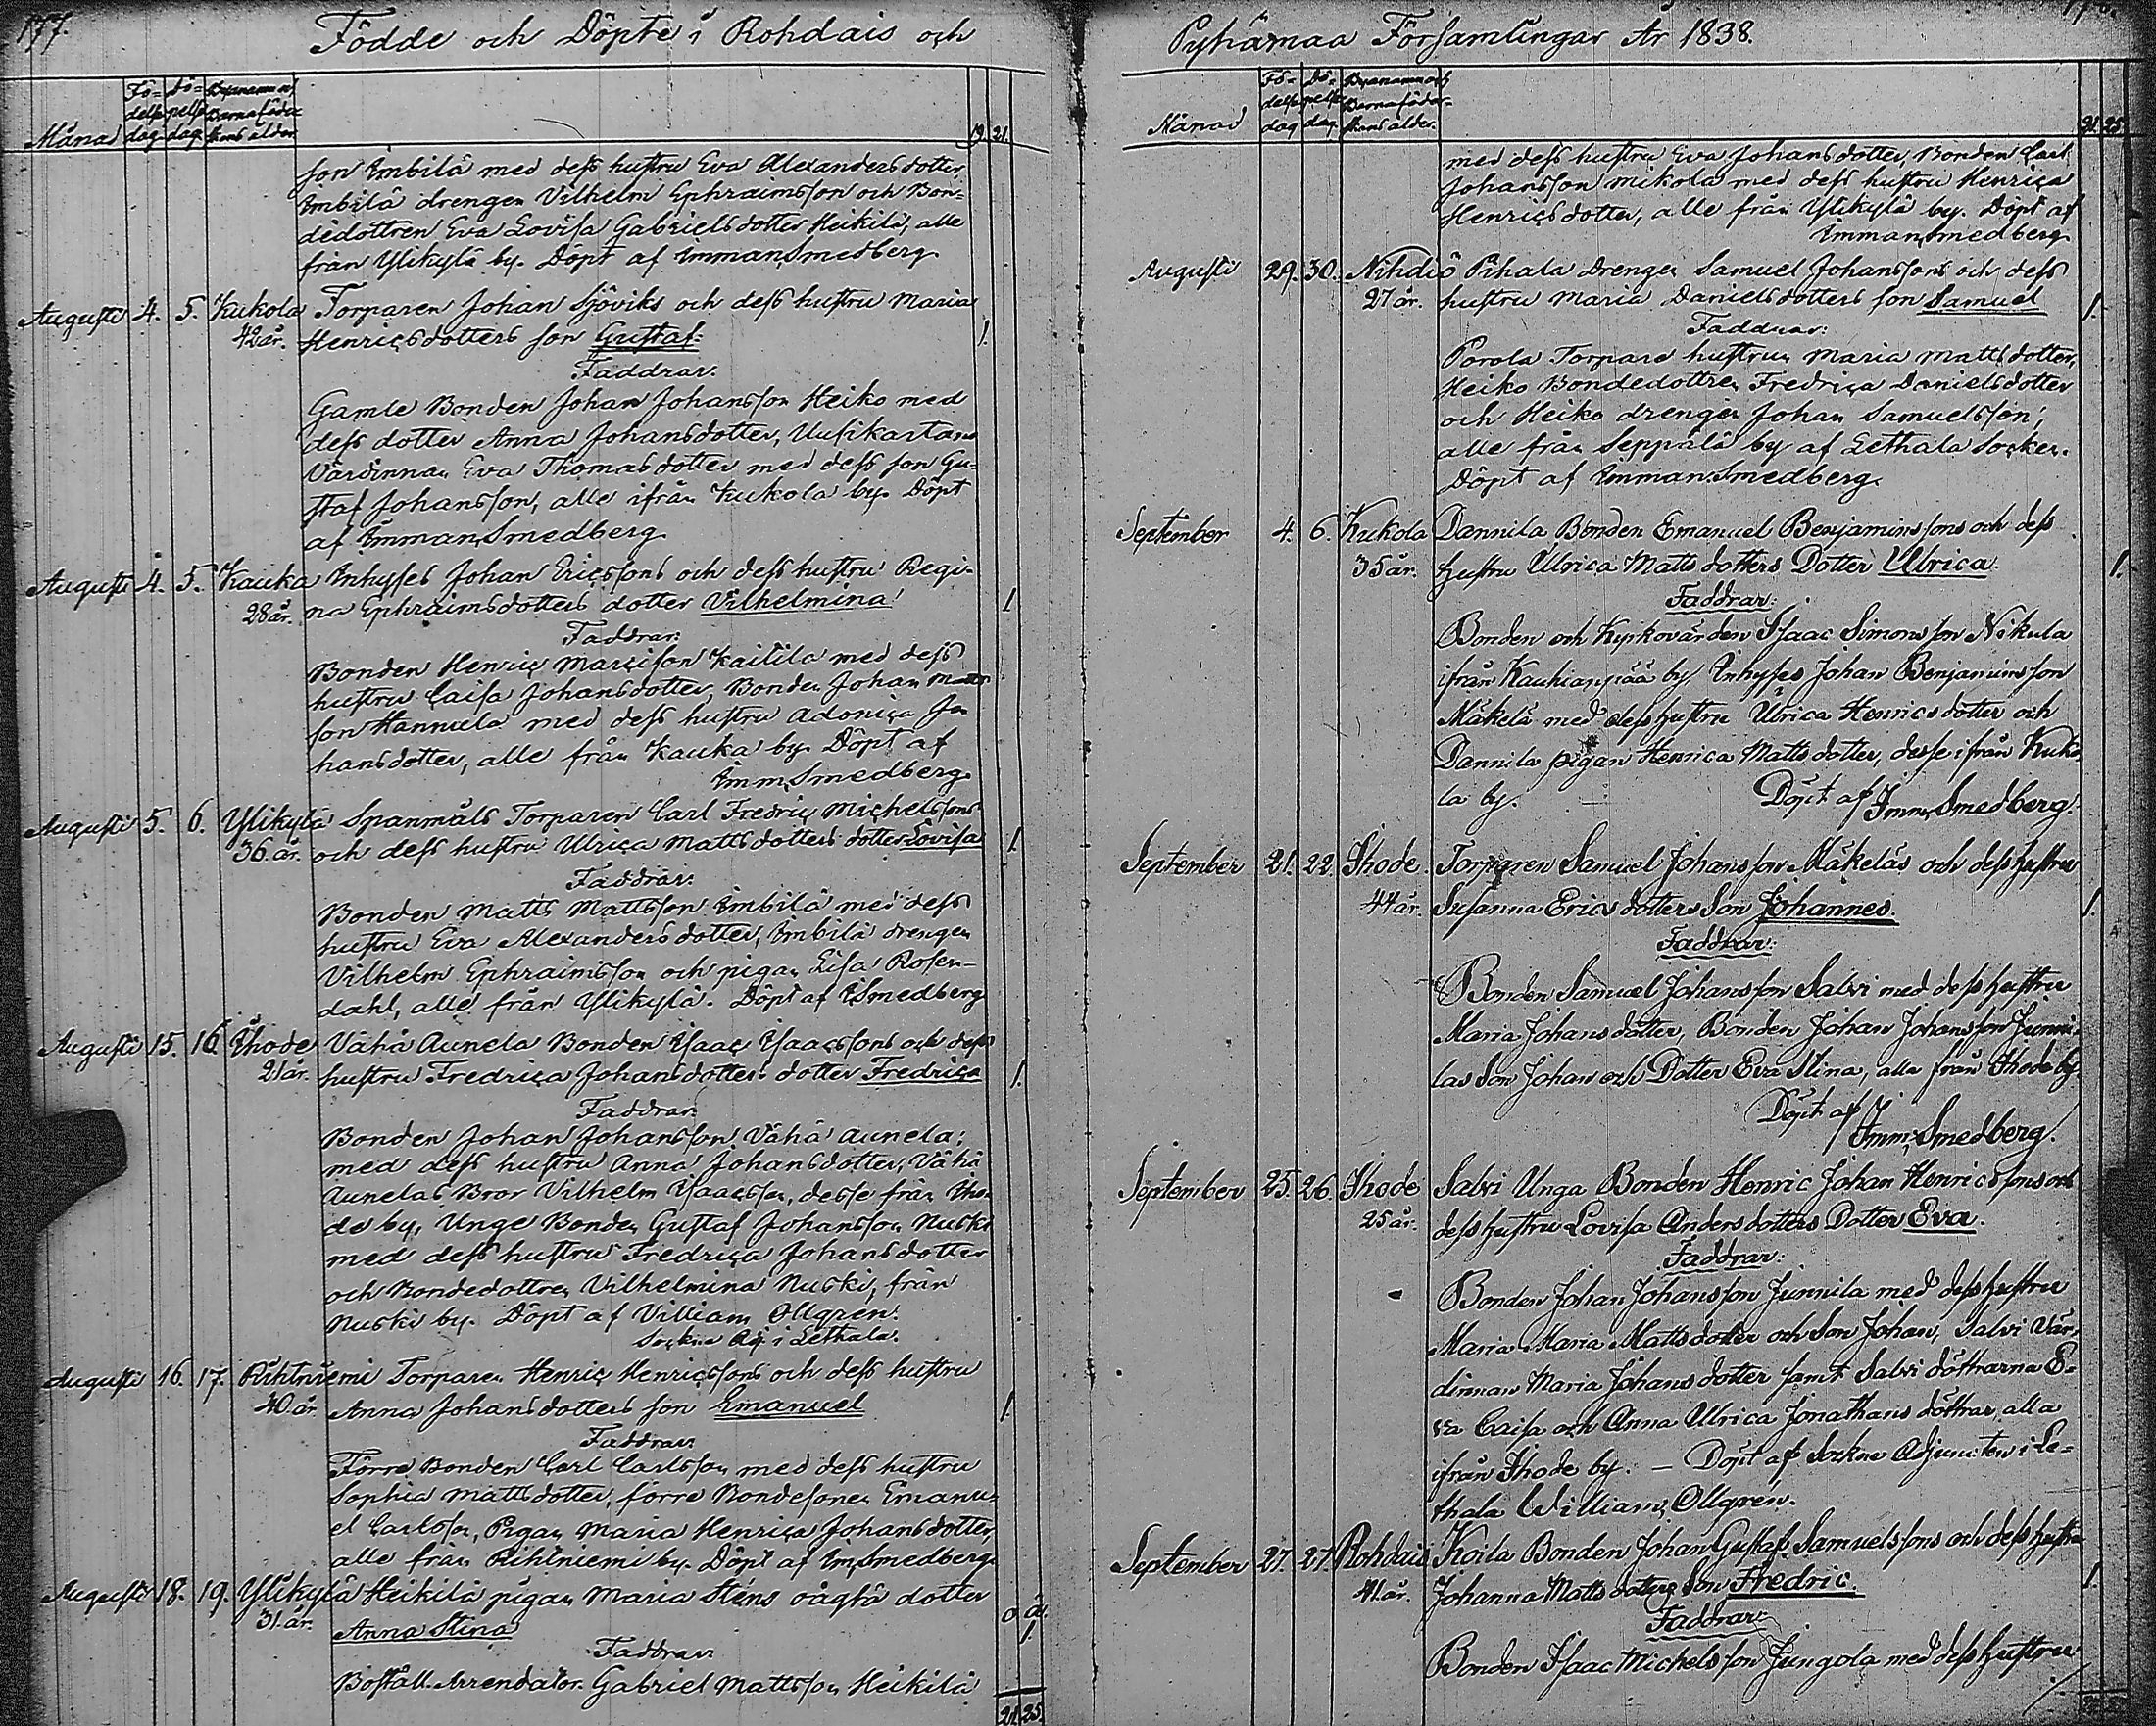 177.
Födde och Döpte i Rohdais och
Månad
Fö-
delse
dag
Dö-
pelse
dag
Bynamn och
Barnaföder-
skans ålder
19. 21.
son Imbilä med dess hustru Eva Alexandersdotter
Imbilä drengen Vilhelm Ephraimsson och Bon-
dedottren Eva Lovisa Gabrielsdotter Heikilä, alle
från Ylikylä by. Döpt af Imman. Smedberg
Augusti 4. 5. Kukola Torparen Johan Sjöviks och dess hustru Maria
42 år. Henricsdotters son Gustaf. 1.
Faddrar.
Gamle Bonden Johan Johansson Heiko med
dess dotter Anna Johansdotter, Uusikartano
Värdinnan Eva Thomasdotter med dess son Gu-
staf Johansson, alle ifrån Kukola by. Döpt
af Imman. Smedberg
Augusti 4. 5. Kauka Inhyses Johan Ericssons och dess hustru Regi-
28 år. na Ephraimsdotters dotter Vilhelmina 1
Faddrar:
Bonden Henric Marcisson Kaitila med dess
hustru Caisa Johansdotter, Bonden Johan Matts
son Hannula med dess hustru Adonica Jo-
hansdotter, alle från Kauka by. Döpt af
Imm. Smedberg
Augusti 5. 6. Ylikylä Spanmåls Torparen Carl Fredric Michelssons
36 år. och dess hustru Ulrica Mattsdotters dotter Lovisa 1
Faddrar.
Bonden Matts Mattsson Imbilä med dess
hustru Eva Alexandersdotter, Imbilä drengen
Vilhelm Ephraimsson och pigan Lisa Rosen-
dahl, alle från Ylikylä. Döpt af I Smedberg
Augusti 15. 16. Ihode Vähä Aunela Bonden Isaac Isaacssons och dess
21 år. hustru Fredrica Johansdotters dotter Fredrica 1.
Faddrar.
Bonden Johan Johansson Vähä Aunela;
med dess hustru Anna Johansdotter, Vähä
Aunelas Bror Vilhelm Isaacsson, desse från Iho-
de by, Unge Bonden Gustaf Johansson Nuski
med dess hustru Fredrica Johansdotter
och Bondedottren Vilhelmina Nuski, från
Nuski by. Döpt af Villiam Ollgren
Sockne Adj. i Lethala.
Augusti 16. 17. Rihtniemi Torparen Henric Henricssons och dess hustru
40 år. Anna Johansdotters son Emanuel 1
Faddrar.
Förre Bonden Carl Carlsson med dess hustru
Sophia Mattsdotter, förre Bondesonen Emanu-
el Carlsson, Pigan Maria Henrica Johansdotter,
alle från Rihtniemi by. Döpt af Im. Smedberg
Augusti 18. 19. Ylikylä Heikilä pigan Maria Stens oägta dotter o ä.
31. år. Anna Stina 1.
Faddrar.
Boställ. Arrendator Gabriel Mattsson Heikilä
21 25.
Pyhämaa Församlingar År 1838.
Månad
Fö-
delse
dag
Dö-
pelse
dag
Bynamn och
Barnaföder-
skans ålder.
21. 25.
med dess hustru Eva Johansdotter, Bonden Carl
Johansson Mikola med dess hustru Henrica
Henricsdotter, alle från Ylikylä by. Döpt af
Imman. Smedberg
Augusti 29. 30. Nihdiö Pihala Drengen Samuel Johanssons och dess
27 år. hustru Maria Danielsdotters son Samuel 1.
Faddrar:
Porola Torpare hustrun Maria Mattsdotter,
Heiko Bondedottren Fredrica Danielsdotter
och Heiko drengen Johan Samuelsson,
alle från Seppälä by af Lethala Socken.
Döpt af Imman. Smedberg
September 4. 6. Kukola Dannila Bonden Emanuel Benjaminssons och dess
35 år. hustru Ulrica Mattsdotters Dotter Ulrica. 1.
Faddrar:
Bonden och Kyrkovärden Isaac Simonsson Nikula
ifrån Kauhianpää by Inhyses Johan Benjaminsson
Mäkelä med dess hustru Ulrica Henricsdotter och
Dannila pigan Henrica Mattsdotter, desse ifrån Kuko
la by. Döpt af Imm. Smedberg.
September 21. 22. Ihode. Torparen Samuel Johansson Mäkeläs och dess hustru
44 år. Susanna Ericsdotters Son Johannes. 1.
Faddrar:
Bonden Samuel Johansson Salvi med dess hustru
Maria Johansdotter, Bonden Johan Johansson Junni-
las Son Johan och Dotter Eva Stina, alla från Ihode by.
Döpt af
Imm. Smedberg.
September 25. 26. Ihode Salvi Unga Bonden Henric Johan Henricssons och
25 år. dess hustru Lovisa Andersdotters Dotter Eva.
Faddrar:
Bonden Johan Johansson Junnila med dess hustru
Maria Maria Mattsdotter och Son Johan, Salvi Vär-
dinnan Maria Johansdotter samt Salvi döttrarna E-
va Caisa och Anna Ulrica Jonathans döttrar, alla
ifrån Ihode by. — Döpt af Sockne Adjuncten i Le-
thala William Ollgren.
September 27. 27. Rohdais Koila Bonden Johan Gustaf Samuelssons och dess hustru
41. år. Johanna Mattsdotters Son Fredric. 1.
Faddrar:
Bonden Isaac Michelsson Jungola med dess hustru